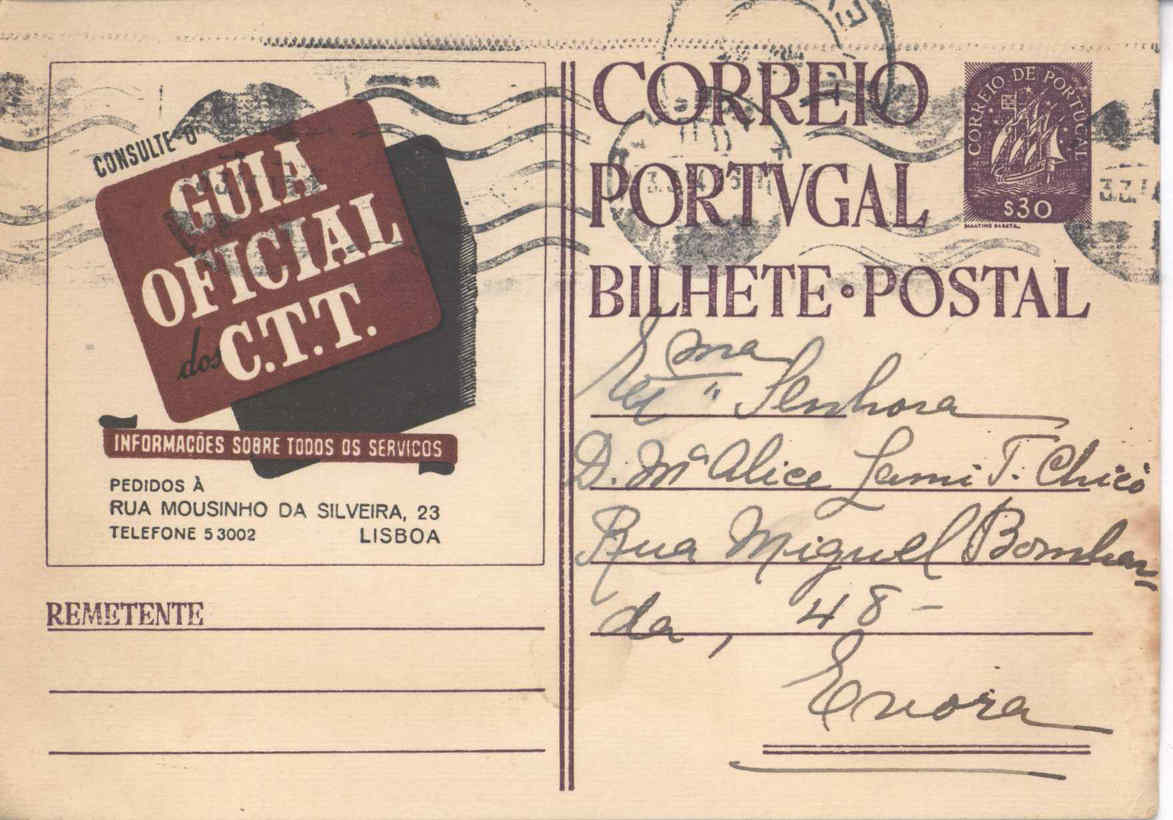 CONSULTE O
GUIA
OFICIAL
dos C.T.T.
INFORMAÇÕES SOBRE TODOS OS SERVIÇOS
PEDIDOS À
RUA MOUSINHO DA SILVEIRA, 23
TELEFONE 53002 LISBOA
REMETENTE
CORREIO
PORTVGAL
BILHETE·POSTAL
CORREIO DE PORTUGAL
$30
MARTINS BARATA
Exma
Senhora
D. Mª Alice Lami T. Chicó
Rua Miguel Bombar-
da, 48-
Evora